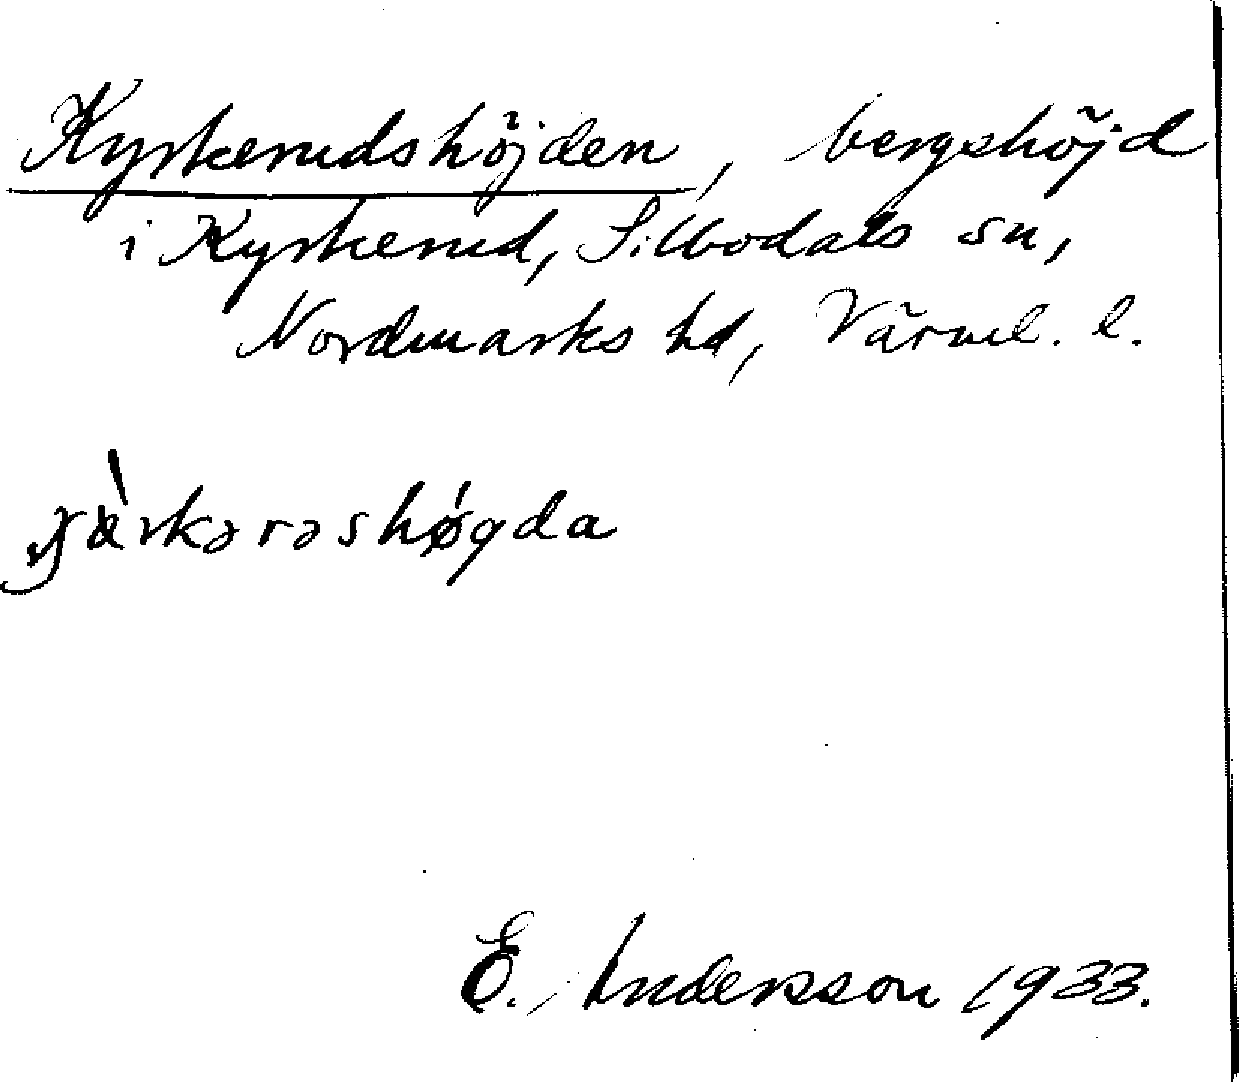 Kyrkerudshöjden, bergshöjd
i Kyrkerud, Silbodals sn,
Nordmarks hd, Värml. l.
E. Andersson 1933.